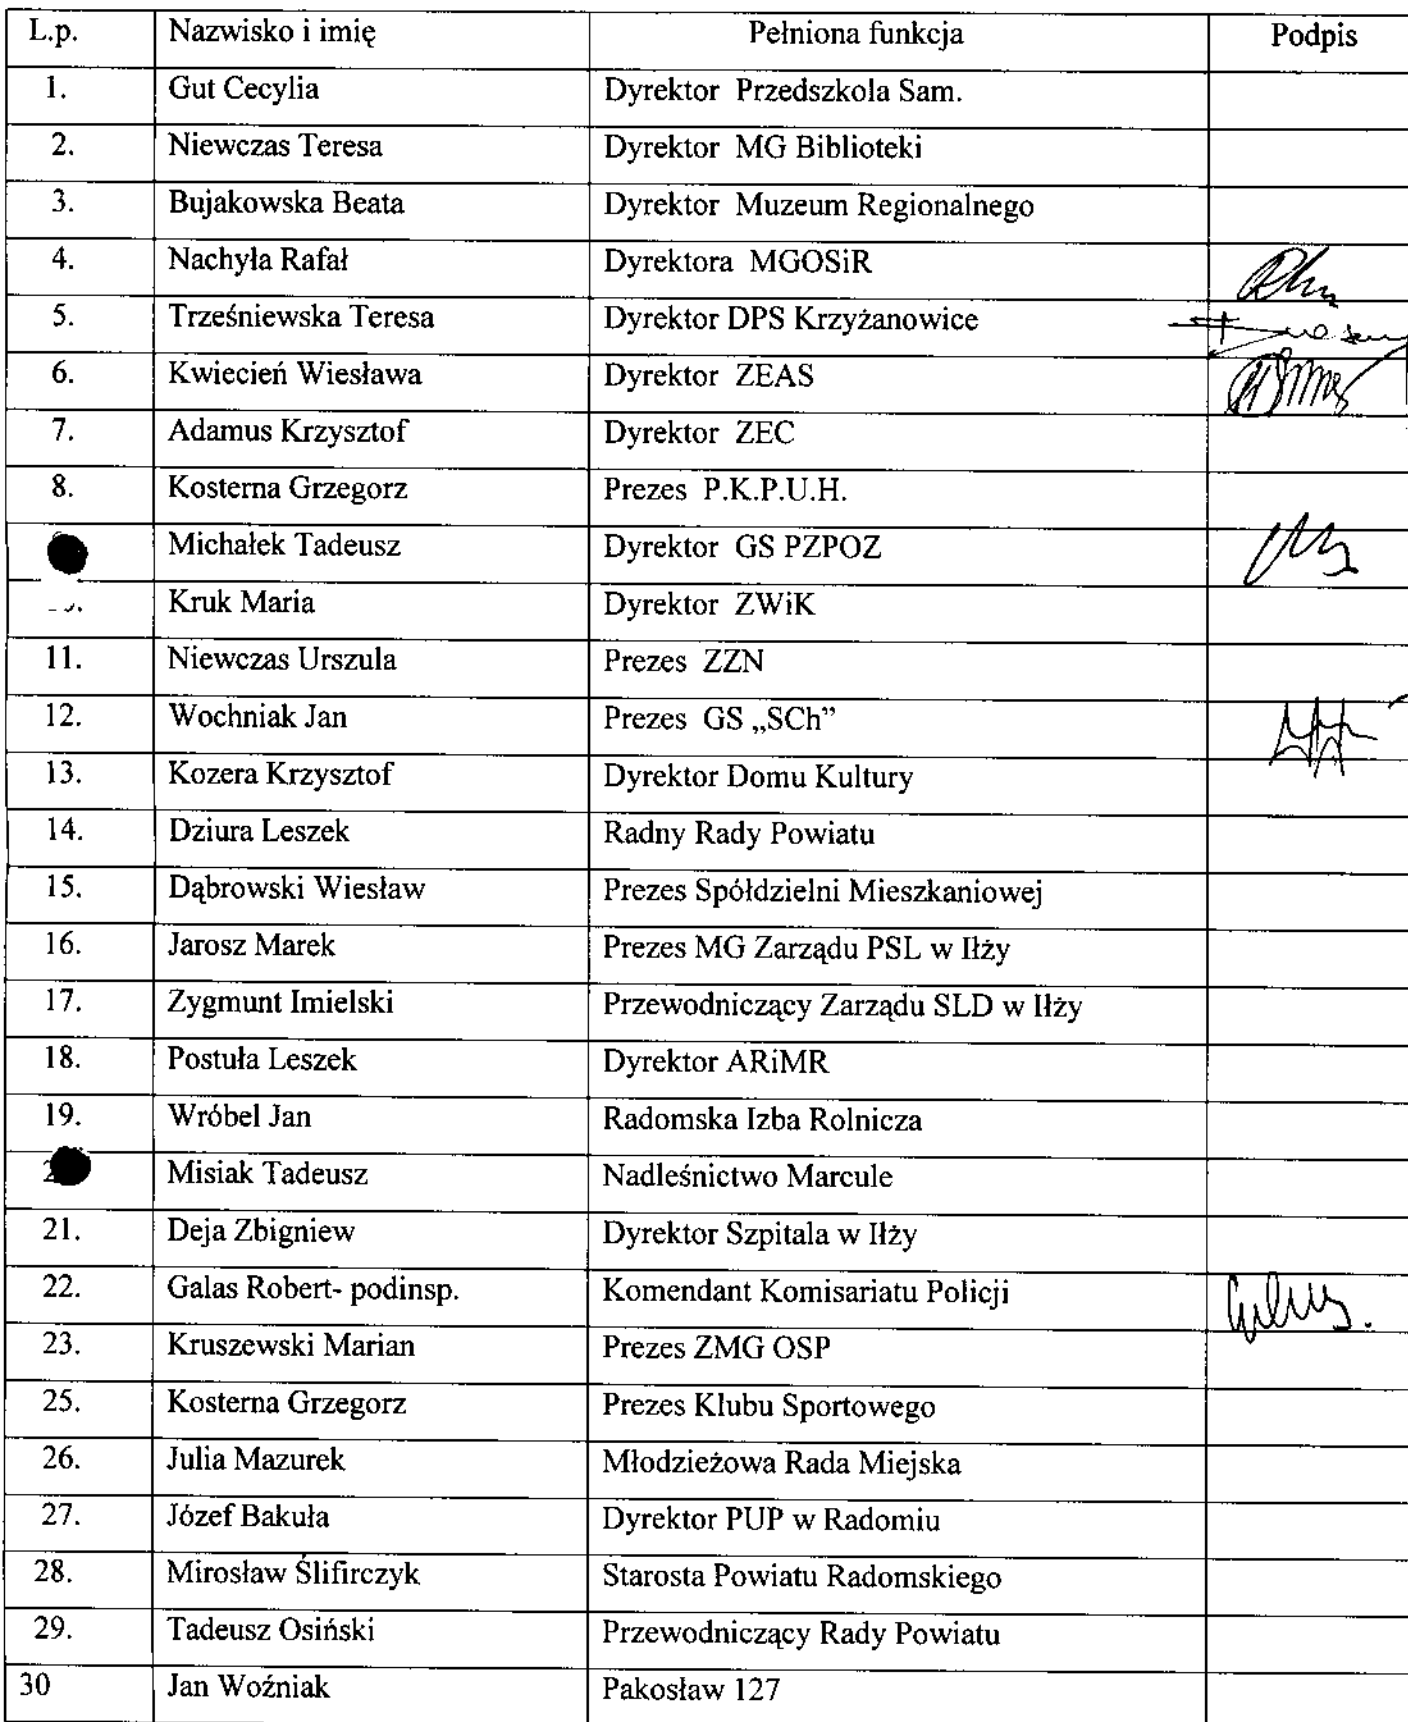 L.p. Nazwisko i imię Pełniona funkcja Podpis
1. Gut Cecylia Dyrektor Przedszkola Sam.
2. Niewczas Teresa Dyrektor MG Biblioteki
3. Bujakowska Beata Dyrektor Muzeum Regionalnego
4. Nachyła Rafał Dyrektora MGOSiR
5. Trześniewska Teresa Dyrektor DPS Krzyżanowice
6. Kwiecień Wiesława Dyrektor ZEAS
7. Adamus Krzysztof Dyrektor ZEC
8. Kosterna Grzegorz Prezes P.K.P.U.H.
Michałek Tadeusz Dyrektor GS PZPOZ
Kruk Maria Dyrektor ZWiK
11. Niewczas Urszula Prezes ZZN
12. Wochniak Jan Prezes GS „SCh”
13. Kozera Krzysztof Dyrektor Domu Kultury
14. Dziura Leszek Radny Rady Powiatu
15. Dąbrowski Wiesław Prezes Spółdzielni Mieszkaniowej
16. Jarosz Marek Prezes MG Zarządu PSL w Iłży
17. Zygmunt Imielski Przewodniczący Zarządu SLD w Iłży
18. Postuła Leszek Dyrektor ARiMR
19. Wróbel Jan Radomska Izba Rolnicza
Misiak Tadeusz Nadleśnictwo Marcule
21. Deja Zbigniew Dyrektor Szpitala w Iłży
22. Galas Robert- podinsp. Komendant Komisariatu Policji
23. Kruszewski Marian Prezes ZMG OSP
25. Kosterna Grzegorz Prezes Klubu Sportowego
26. Julia Mazurek Młodzieżowa Rada Miejska
27. Józef Bakuła Dyrektor PUP w Radomiu
28. Mirosław Ślifirczyk Starosta Powiatu Radomskiego
29. Tadeusz Osiński Przewodniczący Rady Powiatu
30 Jan Woźniak Pakosław 127